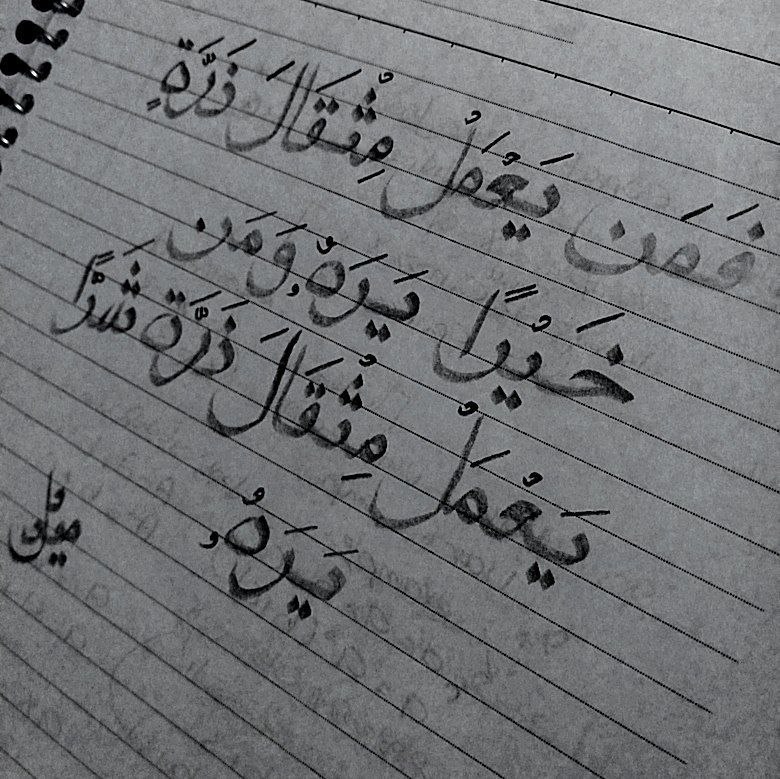 فَمَن يَعْمَلْ مِثْقَالَ ذَرَّةٍ
خَيْرًا يَرَهُۥ وَمَن
يَعْمَلْ مِثْقَالَ ذَرَّةٍ شَرًّا
يَرَهُۥ